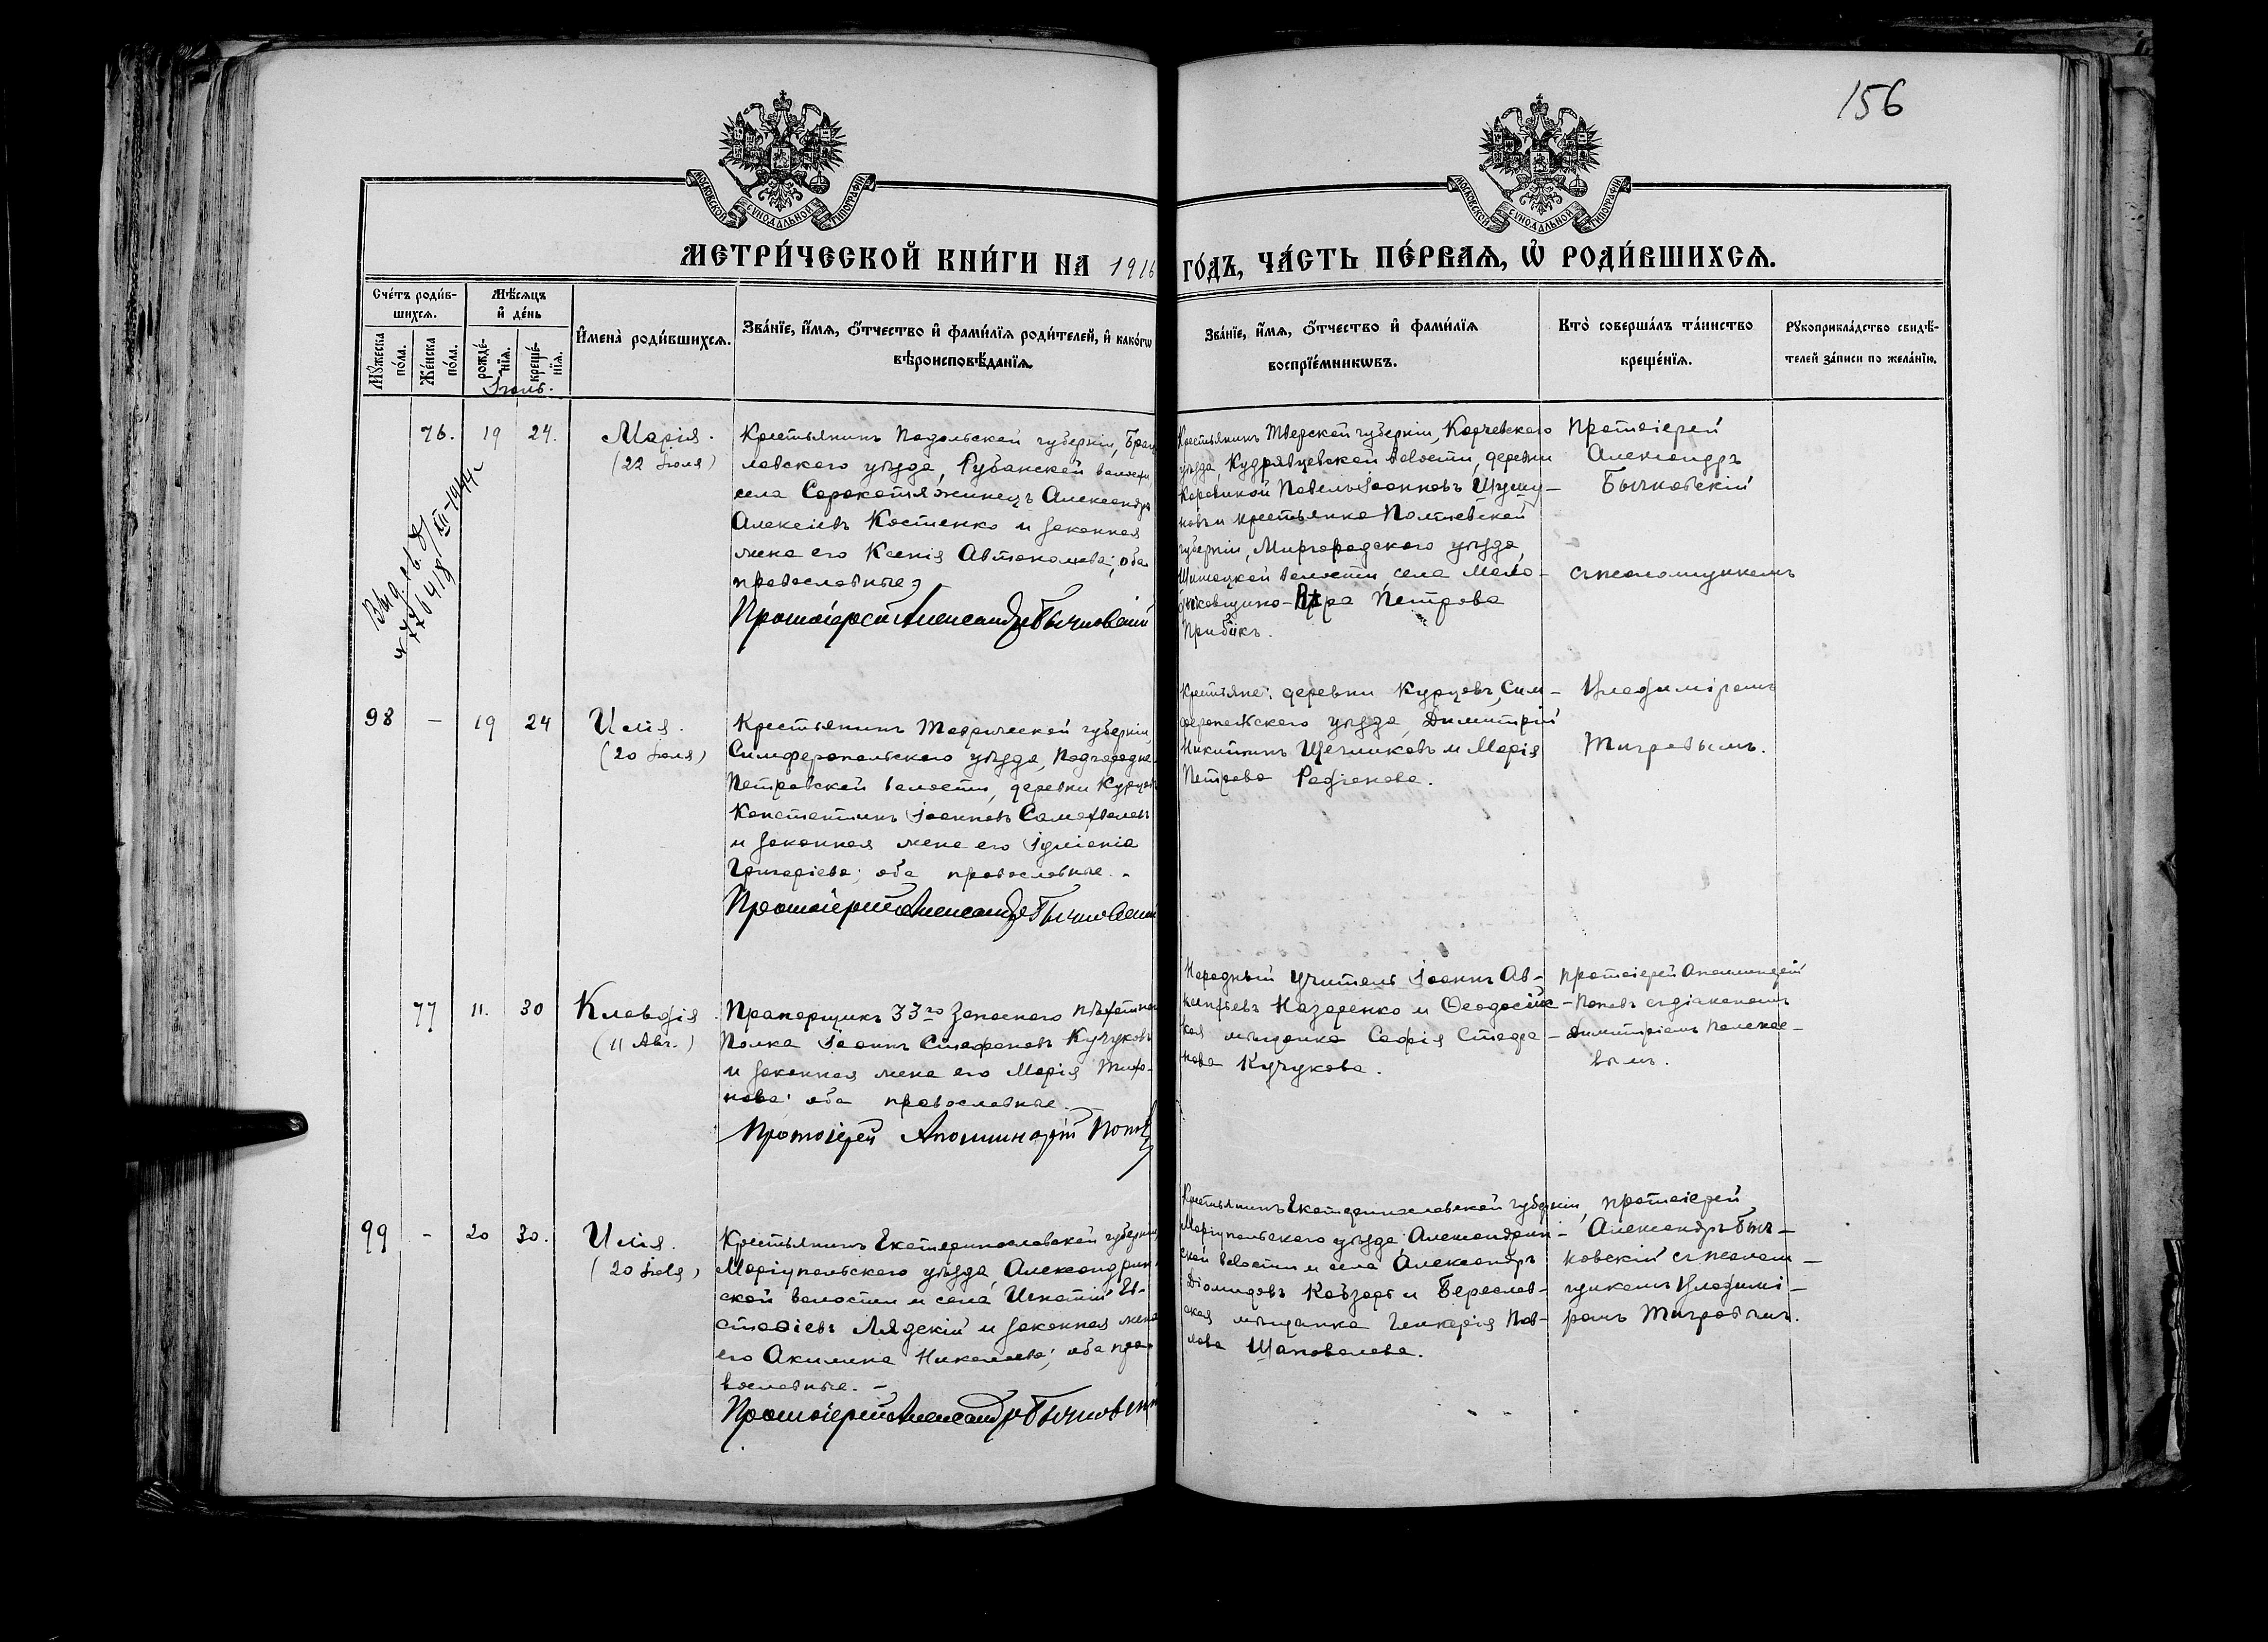 156
МОСКОВСКОЙ СѴНОДАЛЬНОЙ ТИПОГРАФІИ
МОСКОВСКОЙ СѴНОДАЛЬНОЙ ТИПОГРАФІИ
МЕТРИ́ЧЕСКОЙ КНИ́ГИ НА 1916 ГО́ДЪ, ЧА́СТЬ ПЕ́РВАѦ, Ѡ҆ РОДИ́ВШИХСѦ.
Сче́тъ роди́в-
шихсѧ.
Мꙋ́жеска по́ла.
Же́нска по́ла.
Мѣ́сѧцъ
и҆ де́нь
рожде́-
нїѧ.
креще́-
нїѧ.
Іюль.
И҆мена̀ роди́вшихсѧ.
Зва́нїе, и҆́мѧ, ѻ҆́тчество и҆ фами́лїѧ роди́телей, и҆ како́гѡ
вѣроисповѣ́данїѧ.
Зва́нїе, и҆́мѧ, ѻ҆́тчество и҆ фами́лїѧ
воспрїе́мникѡвъ.
Кто̀ соверша́лъ та́инство
креще́нїѧ.
Рꙋкоприкла́дство свидѣ́-
телей за́писи по жела́нїю.
76. 19 24.
Марія.
(22 Іюля)
Крестьянинъ Подольской губерніи, Брац
лавскаго уѣзда, Рубанской волости,
села Сорокотяжинецъ Александръ
Алексіевъ Костенко и законная
жена его Ксенія Автономова; оба
православные
Протоіерей Александръ Бычковскій
Крестьянинъ Тверской губерніи, Корчевского
уѣзда, Кудрявцевской волости, деревни
Павелъ Іоанновъ Шушу-
новъ и крестьянка Полтавской
губерніи, Миргородского уѣзда,
Шишацкой волости, села Мало-
Петрова
Прибикъ.
Протоіерей
Александръ
Бычковскій
съ псаломщикомъ
Владиміромъ
Тигровымъ.
Выд. св.
98 - 19 24
Илія.
(20 Іюля)
Крестьянинъ Таврической губерніи,
Симферопольского уѣзда, Подгородне-
Петровской волости, деревни Курцовъ
Константинъ Іоанновъ Самохваловъ
и законная жена его Іуліанія
Григоріева; оба православные. -
Протоіерей Александръ Бычковскій
Крестьяне: деревни Курцовъ, Сим-
феропольского уѣзда, Димитрій
Никитинъ Щечниковъ и Марія
Петрова Радіонова.
77 11. 30
Клавдія.
(11 Авг.)
Прапорщикъ 33го Запасного пѣхотнаго
Полка Іоаннъ Стефановъ Кучуковъ
и законная жена его Марія Тихо-
нова; оба православные.
Протоіерей Аполлинарій Поповъ
Народный учитель Іоаннъ Ав-
Назаренко и Ѳеодосійс-
кая мѣщанка Софія Стефа-
нова Кучукова.
Протоіерей Аполлинарій
Поповъ съ діакономъ
Димитріемъ Полека-
вымъ.
99 - 20 30.
Илія.
(20 Іюля)
Крестьянинъ Екатеринославской губерніи
Маріупольского уѣзда, Александрин-
ской волости и села Игнатій Ев-
стафіевъ Лядскій и законная жена
его Акилина Николаева; оба пра-
вославные. -
Протоіерей Александръ Бычковскій
Крестьянинъ Екатеринославской губерніи,
Маріупольского уѣзда, Александрин-
ской волости и села Александръ
Діомидовъ Кобзарь и Береслав-
ская мѣщанка Гликерія Пав-
лова Шаповалова.
Протоіерей
Александръ Быч-
ковскій съ псалом-
щикомъ Владимі-
ромъ Тигровымъ.